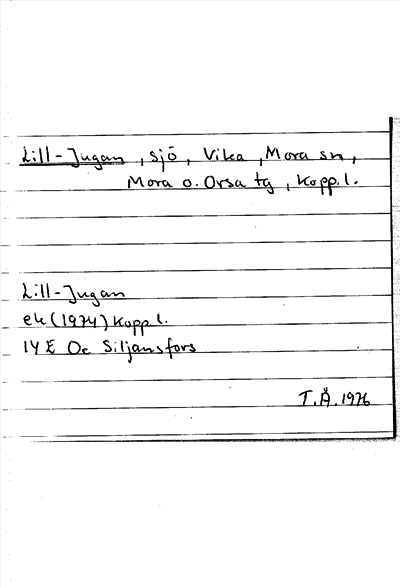 Lill-Jugan, sjö, Vika, Mora sn,
Mora o. Orsa tg, Kopp.l.
Lill-Jugan
ek (1974) Kopp.l.
14 E Oc Siljansfors
T.Å. 1976